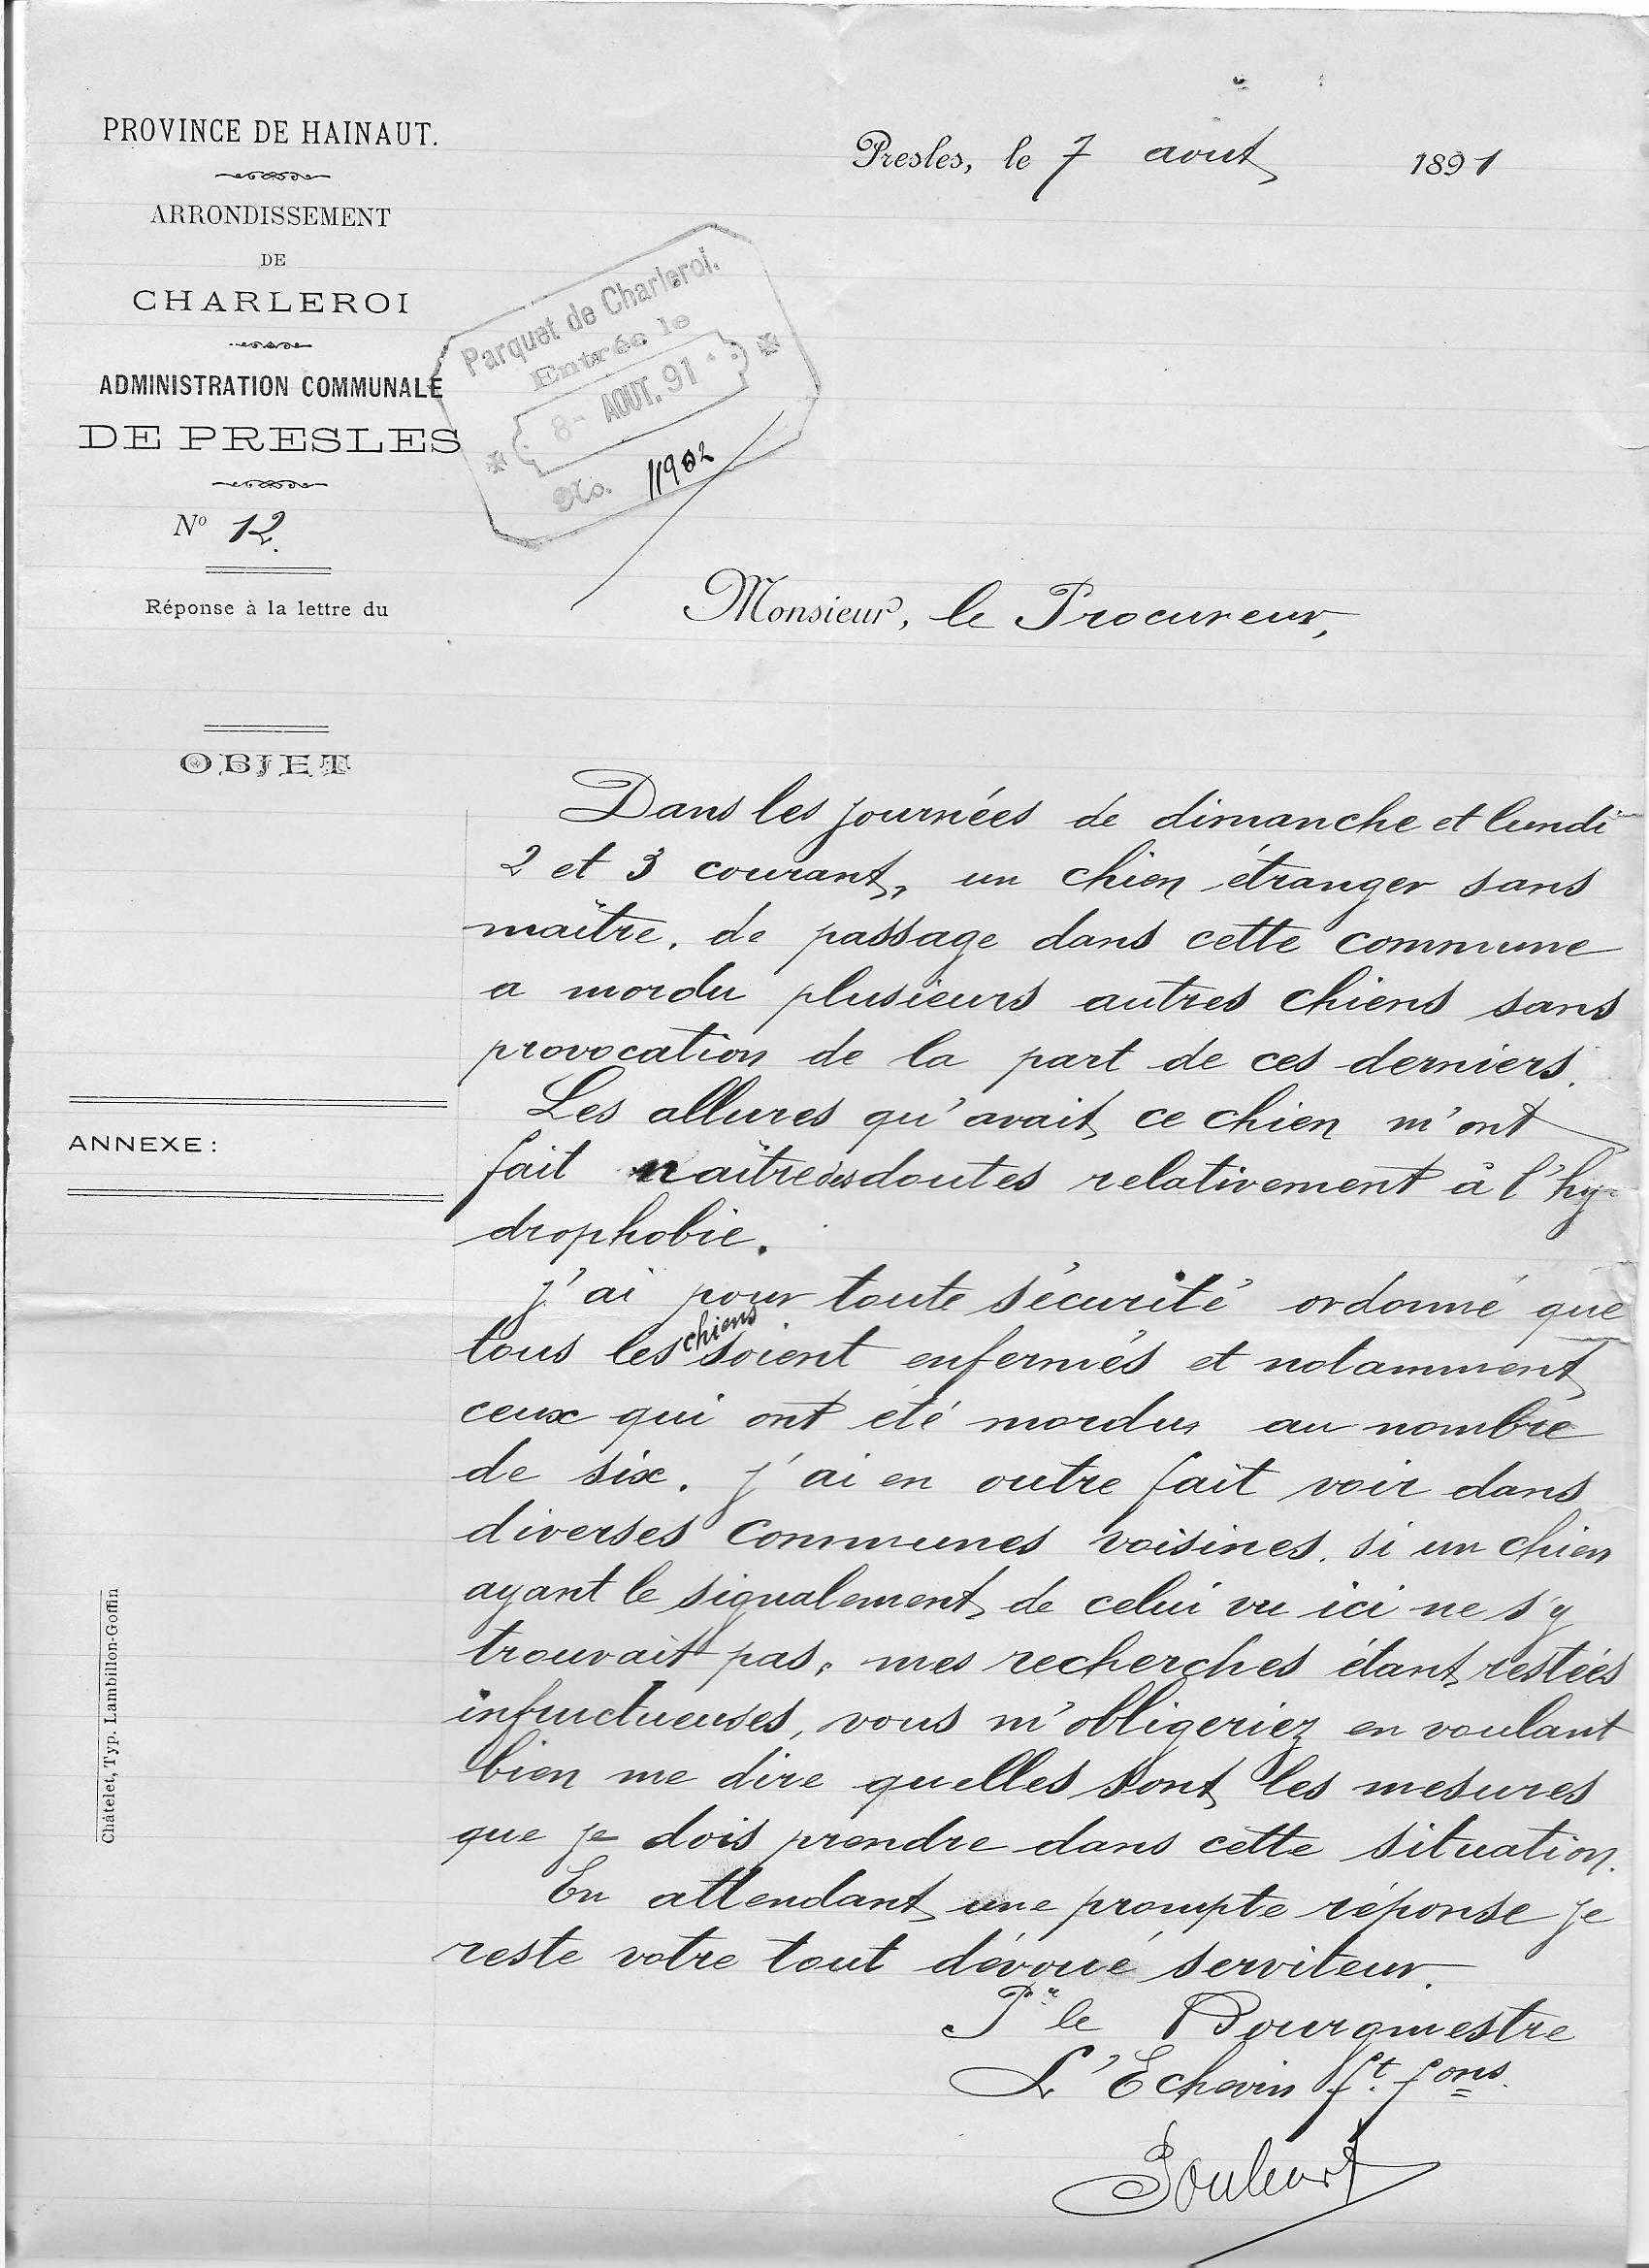 PROVINCE DE HAINAUT.
ARRONDISSEMENT
DE
CHARLEROI
ADMINISTRATION COMMUNALE
DE PRESLES
Nº 12.
Réponse à la lettre du
OBJET
ANNEXE :
Châtelet, Typ. Lambillon-Goffin
Presles, le 7 aout 1891
Parquet de Charleroi.
Entrée le
8 - AOUT. 91
No. 11902
Monsieur, le Procureur,
Dans les journées de dimanche et lundi
2 et 3 courant, un chien étranger sans
maître, de passage dans cette commune
a mordu plusieurs autres chiens sans
provocation de la part de ces derniers.
Les allures qu'avait ce chien m'ont
fait naître des doutes relativement à l'hy-
drophobie.
J'ai pour toute sécurité ordonné que
tous les chiens soient enfermés et notamment
ceux qui ont été mordus au nombre
de six. J'ai en outre fait voir dans
diverses communes voisines, si un chien
ayant le signalement de celui vu ici ne s'y
trouvait pas, mes recherches étant restées
infructueuses, vous m'obligeriez en voulant
bien me dire quelles sont les mesures
que je dois prendre dans cette situation.
En attendant une prompte réponse je
reste votre tout dévoué serviteur.
Pr le Bourgmestre
L'Echevin ft. fons.